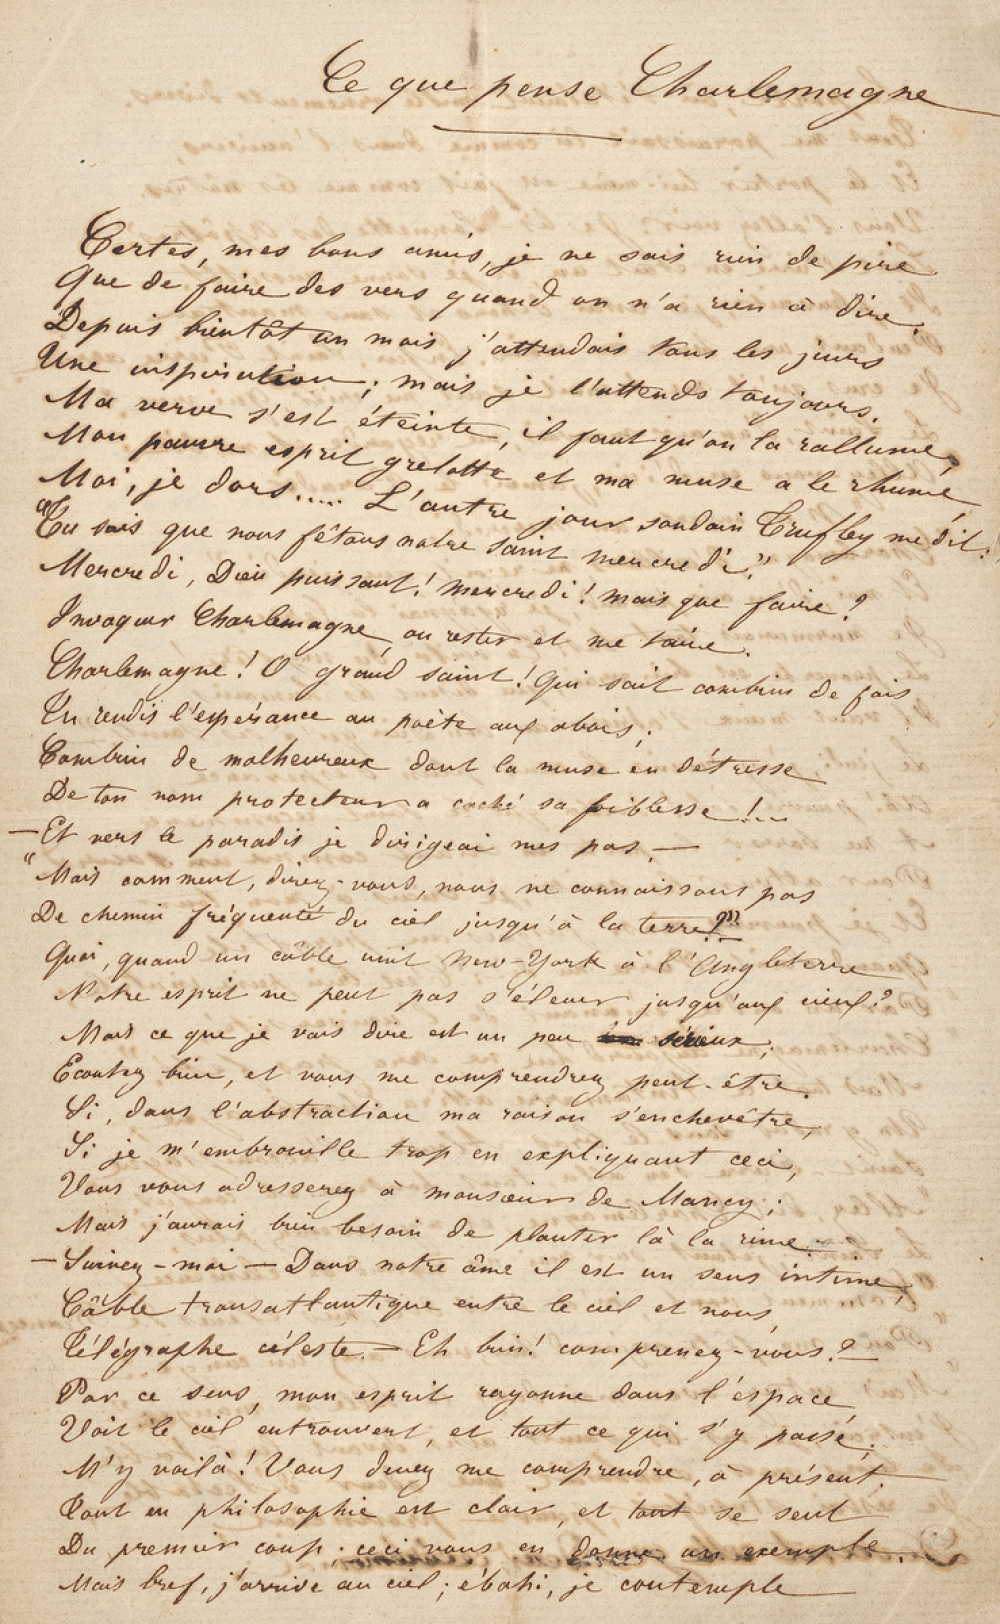 Ce que pense Charlemagne
Certes, mes bons amis, je ne sais rien de pire
Que de faire des vers quand on n'a rien à dire.
Depuis bientôt un mois j'attendais tous les jours
Une inspiration ; mais je l'attends toujours.
Ma verve s'est éteinte, il faut qu'on la rallume,
Mon pauvre esprit grelotte et ma muse a le rhume
Moi, je dors..... L'autre jour soudain Truffey me dit :
"Tu sais que nous fêtons notre saint mercredi."
Mercredi, Dieu puissant ! mercredi ! mais que faire ?
Invoquer Charlemagne, ou rester et me taire.
Charlemagne ! O grand saint ! Qui sait combien de fois
Tu rendis l'espérance au poète aux abois ;
Combien de malheureux dont la muse en détresse
De ton nom protecteur a caché sa faiblesse !...
— Et vers le paradis je dirigeai mes pas. —
"Mais comment, direz-vous, nous ne connaissons pas
De chemin fréquenté du ciel jusqu'à la terre ?"
Quoi, quand un câble unit New-York à l'Angleterre
Notre esprit ne peut pas s'élever jusqu'aux cieux ?
Mais ce que je vais dire est un peu sérieux ;
Ecoutez bien, et vous me comprendrez peut-être.
Si, dans l'abstraction ma raison s'enchevêtre,
Si je m'embrouille trop en expliquant ceci,
Vous vous adresserez à monsieur de Mancy ;
Mais j'aurais bien besoin de planter là la rime.
— Suivez-moi — Dans notre âme il est un sens intime,
Câble transatlantique entre le ciel et nous,
Télégraphe céleste. — Eh bien ! comprenez-vous ? —
Par ce sens, mon esprit rayonne dans l'espace,
Voit le ciel entrouvert, et tout ce qui s'y passe ;
M'y voilà ! Vous devez me comprendre, à présent.
Tout en philosophie est clair, et tout se sent
Du premier coup ; ceci vous en donne un exemple.
Mais bref, j'arrive au ciel ; ébahi, je contemple